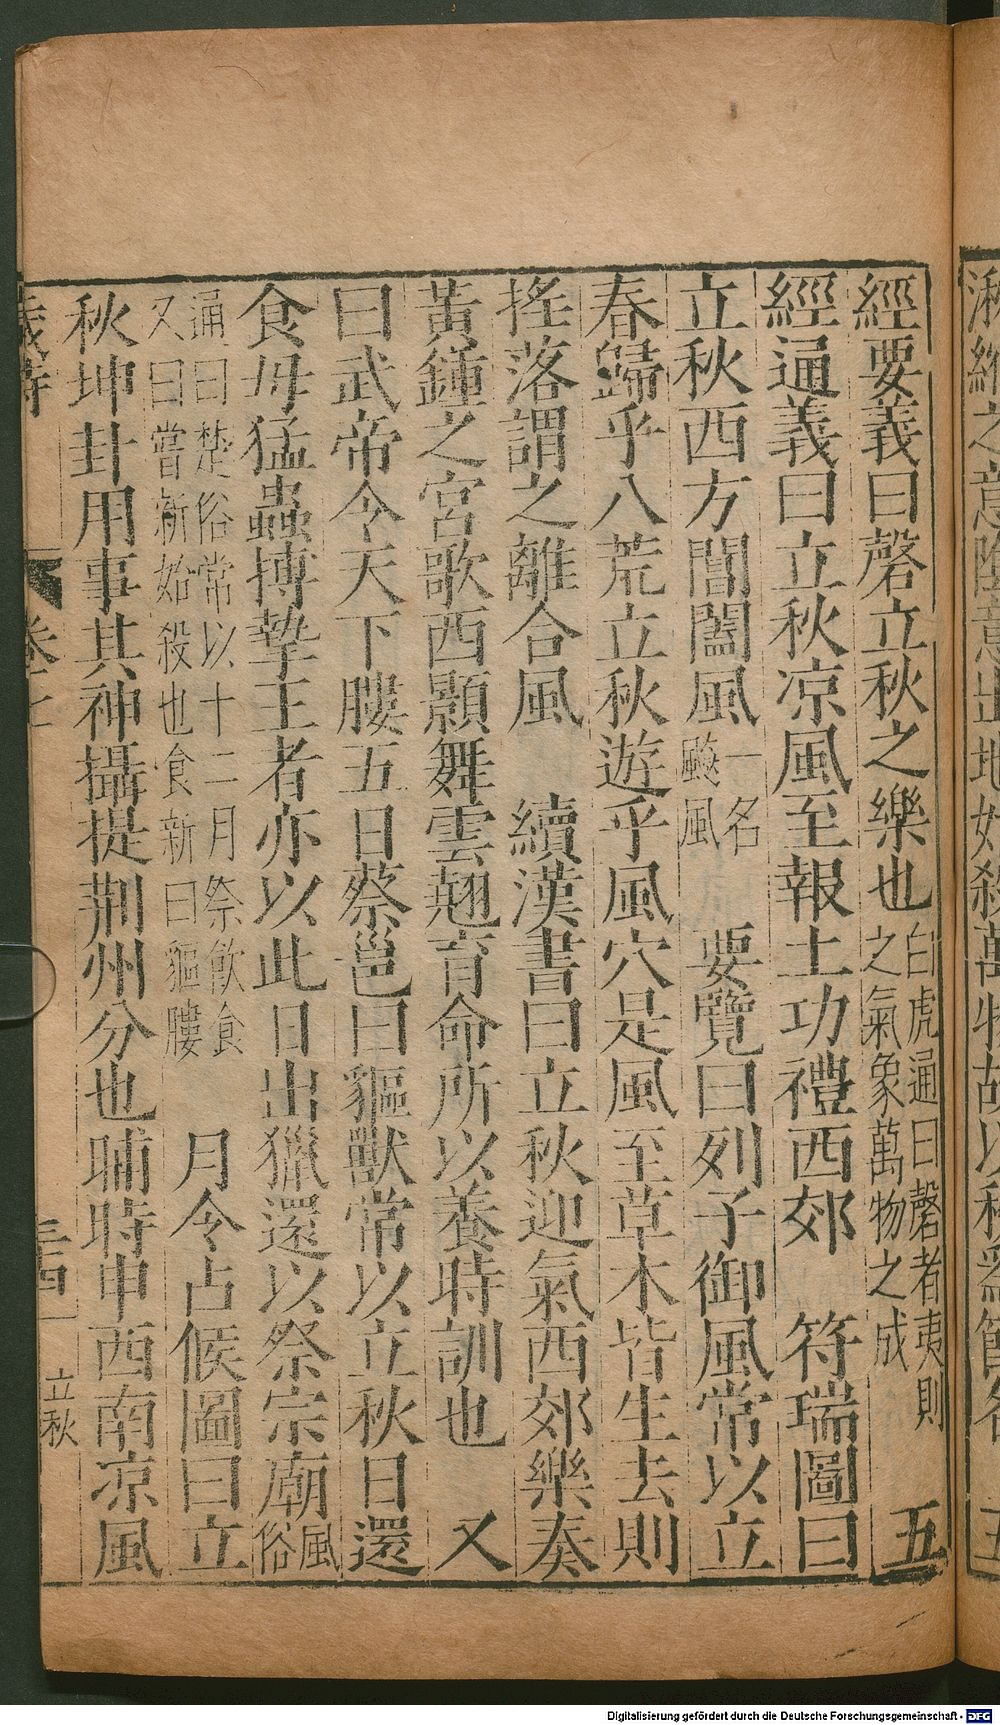 經要義曰磬立秋之樂也白虎通曰磬者夷則之氣象萬物之成 五
經通義曰立秋凉風至報土功禮西郊 符瑞圖曰
立秋西方閶闔風一名飈風 要覽曰列子御風常以立
春歸乎八荒立秋遊乎風穴是風至草木皆生去則
揺落謂之離合風 續漢書曰立秋迎氣西郊樂奏
黃鍾之宮歌西顥舞雲翹育命所以養時訓也 又
曰武帝令天下膢五日蔡邕曰貙獸常以立秋日還
食母猛蟲搏摯王者亦以此日出獵還以祭宗廟風俗
通曰楚俗常以十二月祭飲食又曰嘗新始殺也食新曰貙膢 月令占候圖曰立
秋坤卦用事其神攝提荆州分也晡時申西南凉風
歲時 立秋
Digitalisierung gefördert durch die Deutsche Forschungsgemeinschaft - DFG